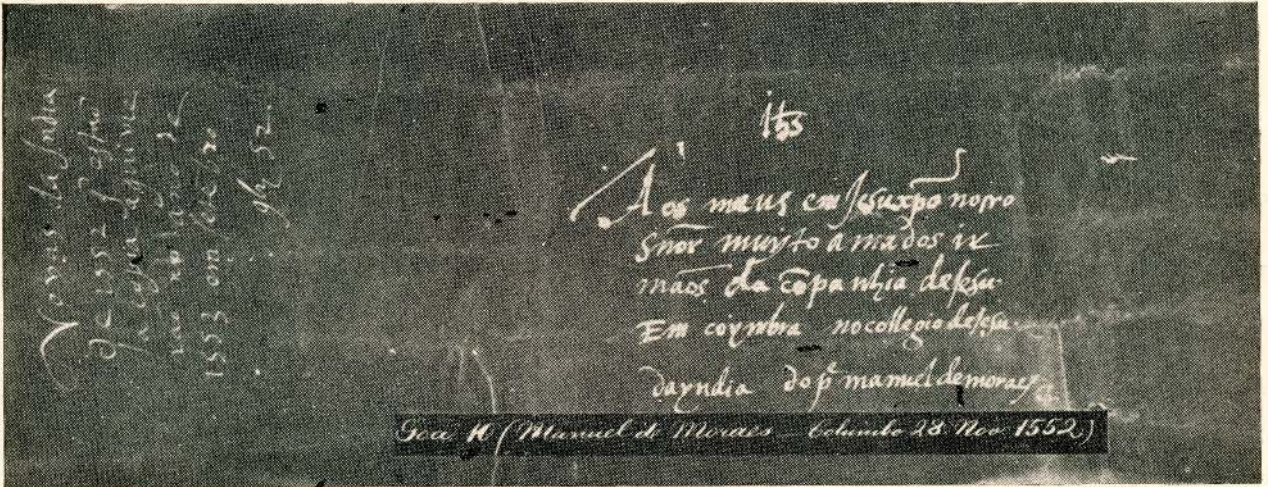 Novas da India
de 1552
a copia
1553
52
Jhs
Aos meus em Jesuxpo nosso
Snor muyto amados ir
mãos da cõpanhia de Jesu
Em coymbra no collegio de Jesu
da yndia do p^e manuel de moraes
Goa 10 (Manuel de Moraes — Columbo 28 Nov. 1552)